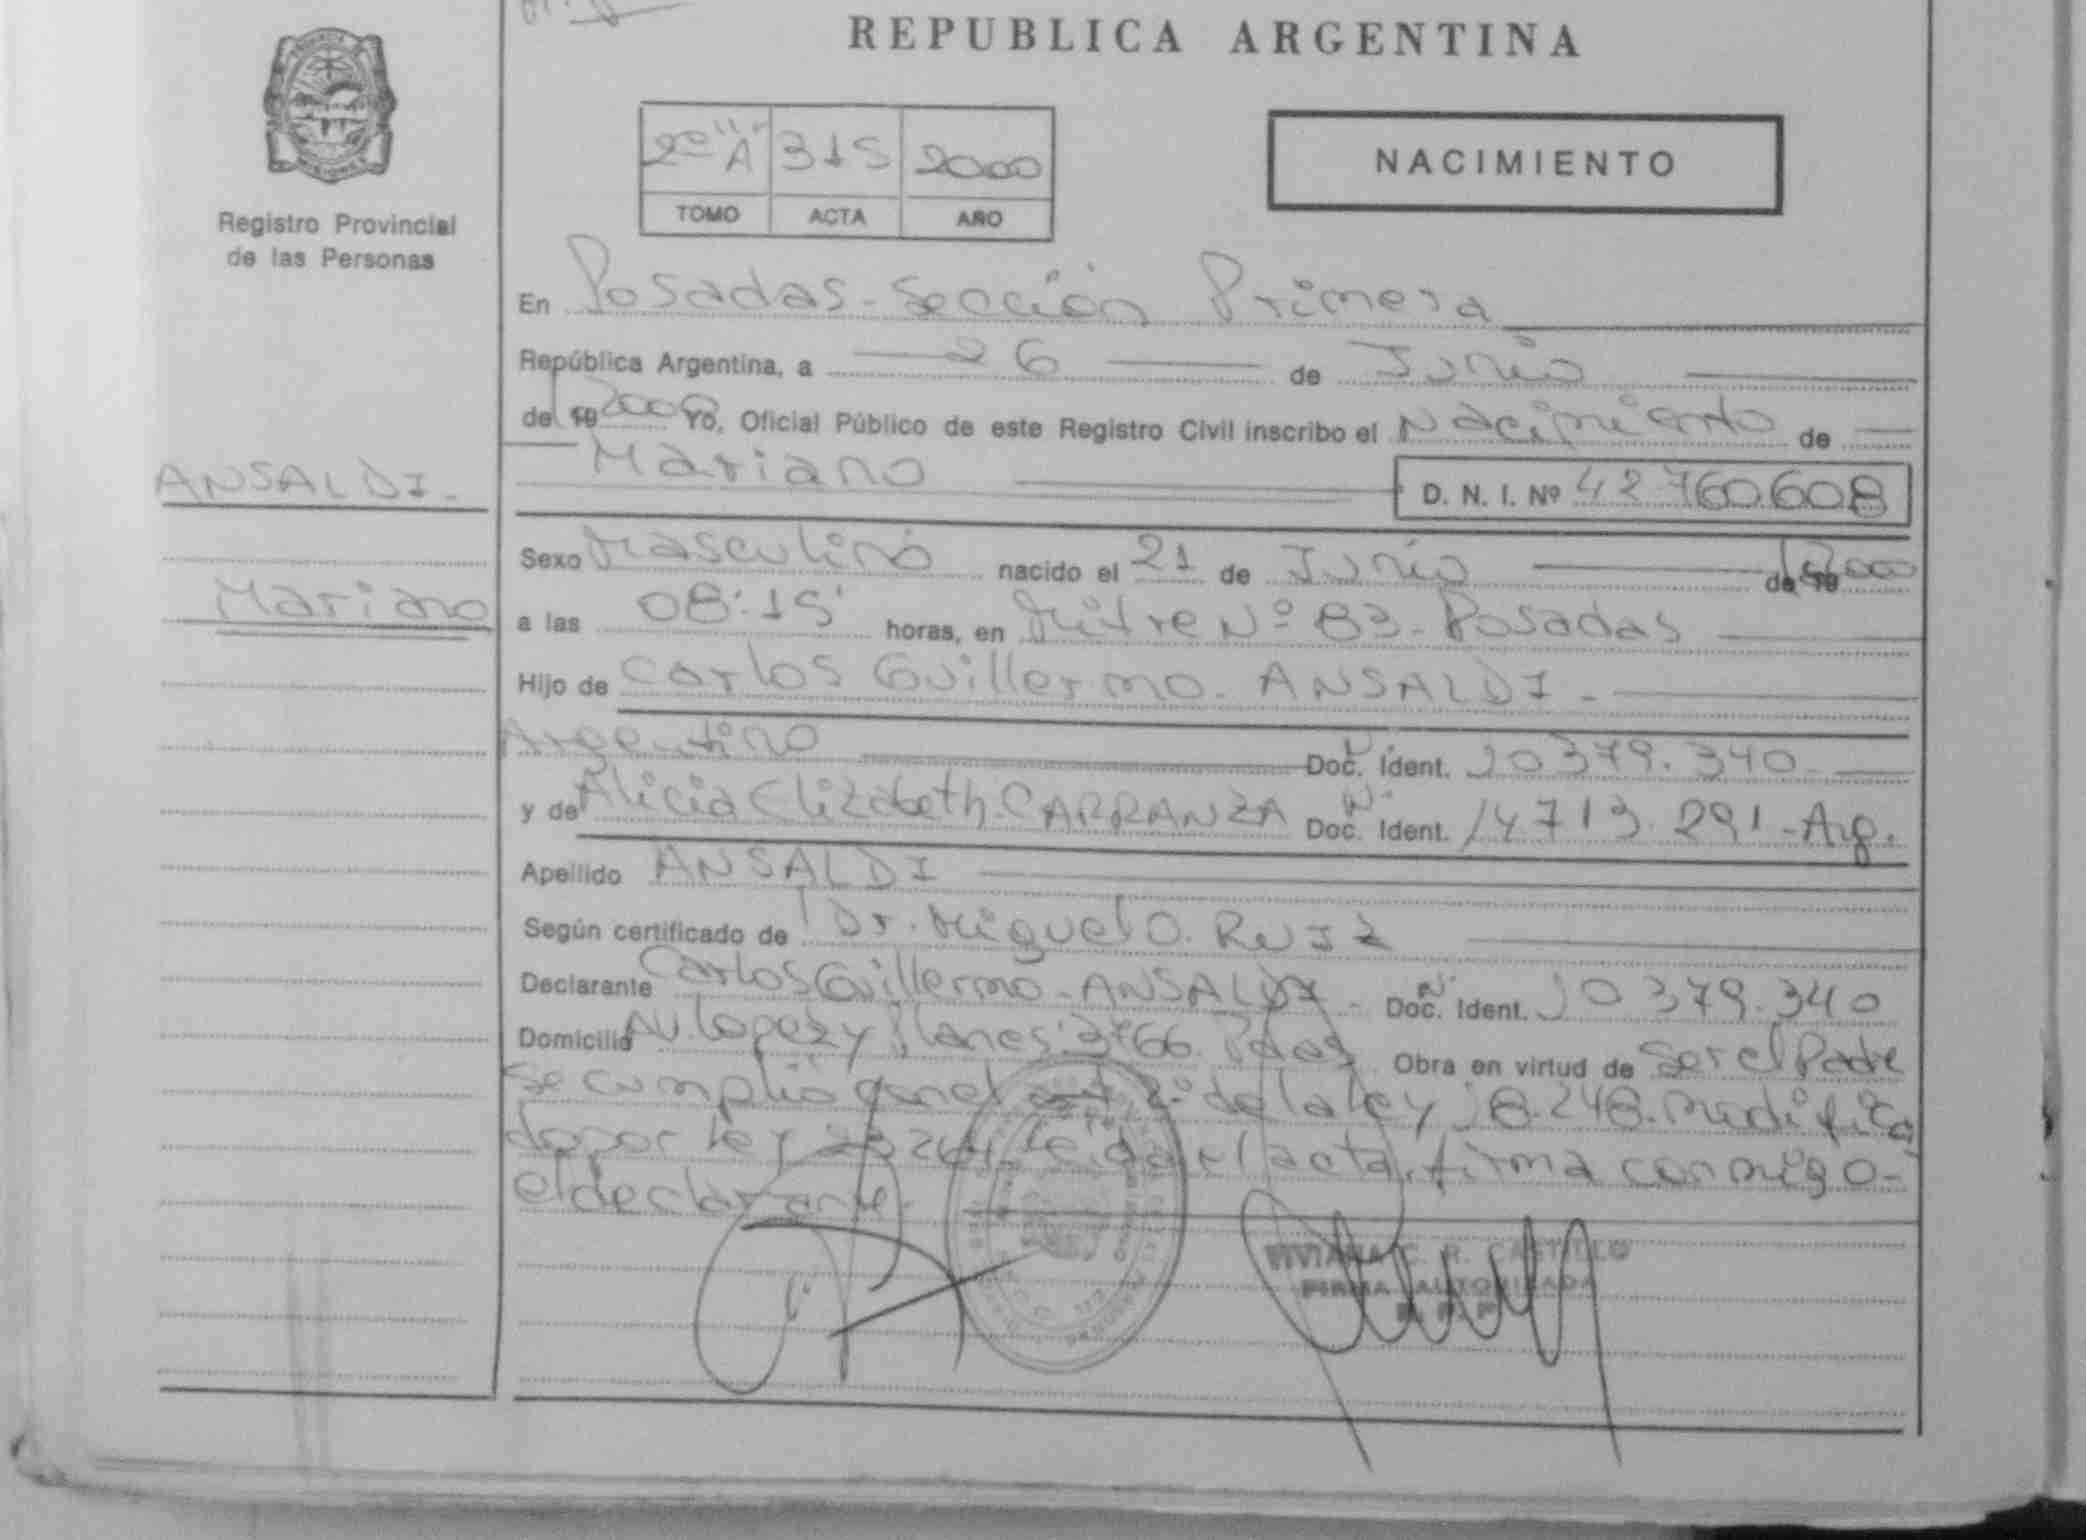 REPUBLICA ARGENTINA
2º "A" 315 2000
TOMO ACTA AÑO
NACIMIENTO
Registro Provincial
de las Personas
En Posadas - Sección Primera
República Argentina, a 26 de Junio
de 19 2000 Yo, Oficial Público de este Registro Civil inscribo el Nacimiento de
Mariano D. N. I. Nº 42760.608
ANSALDI.
Mariano
Sexo Masculino nacido el 21 de Junio de 19 2000
a las 08:15 horas, en Mitre Nº 83 - Posadas
Hijo de Carlos Guillermo - ANSALDI -
Argentino Doc. Ident. 10379.340
y de Alicia Elizabeth CARRANZA Doc. Ident. 14713.291 - Arg.
Apellido ANSALDI
Según certificado de Dr. Miguel O. RUIZ
Declarante Carlos Guillermo - ANSALDI - Doc. Ident. 10379.340
Domicilio Av. Lopez y Planes 3766 Pdas Obra en virtud de ser el Padre
Se cumplió con el art 2º de la ley 18.248. modifica
do por ley 23264. Leida el acta, firma conmigo -
el declarante.
VIVIANA C. R. CASTILLO
FIRMA AUTORIZADA
R. P. P.